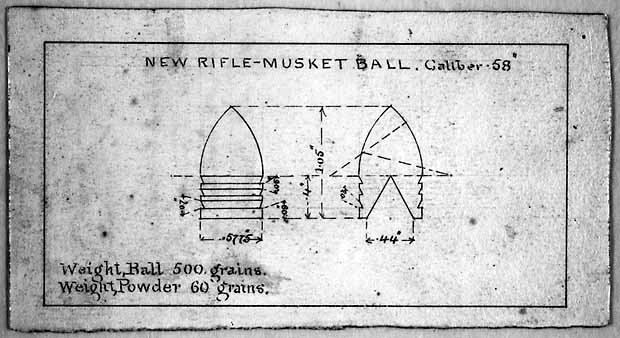 NEW RIFLE-MUSKET BALL. Caliber .58"
1.05"
.4"
.5775"
.44"
Weight, Ball 500 grains.
Weight, Powder 60 grains.